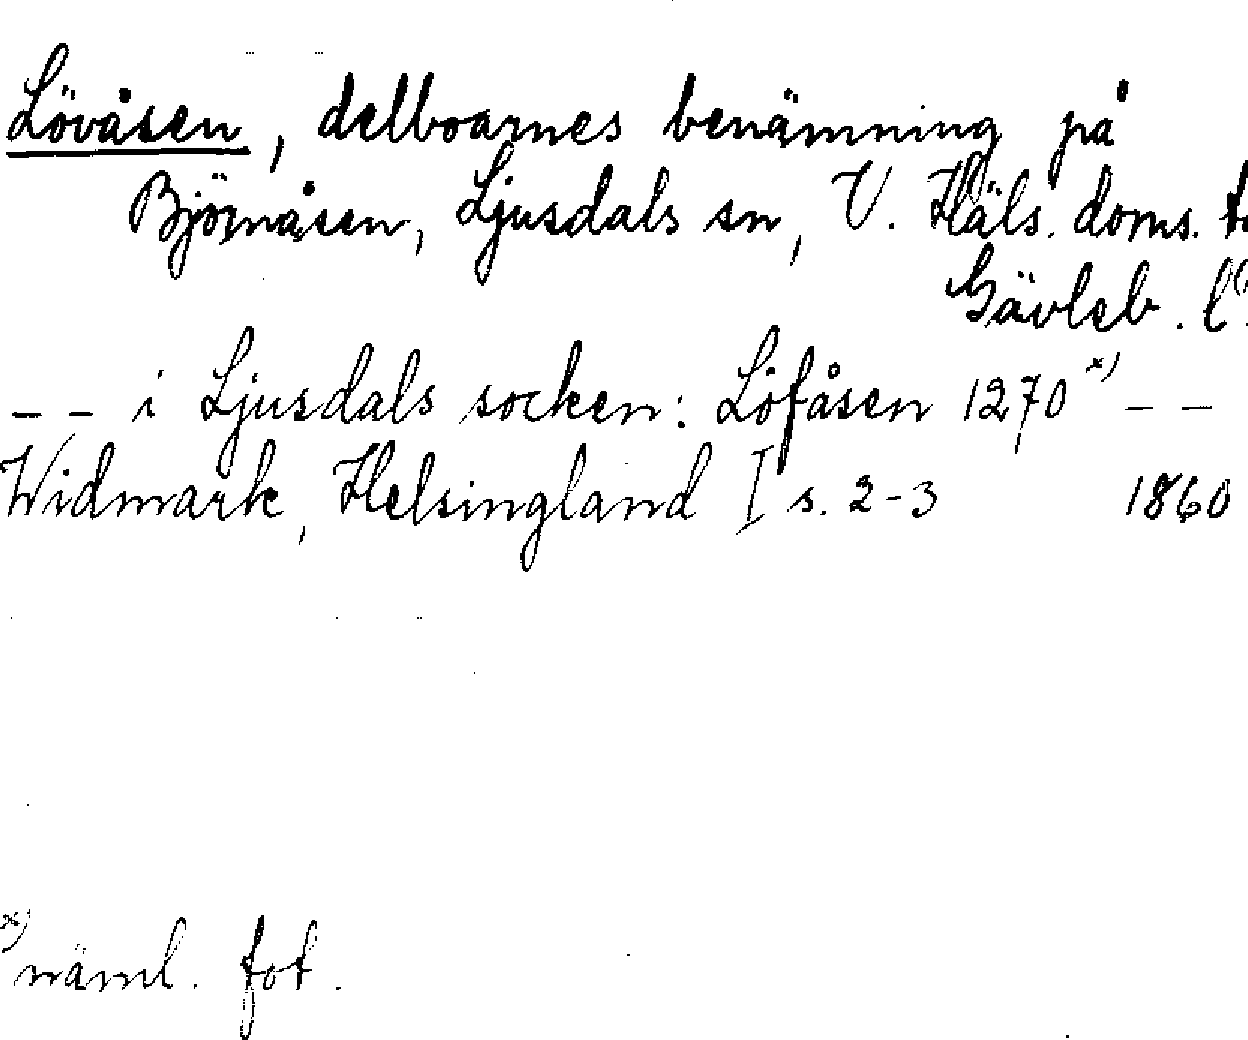 Lövåsen, delboarnes benämning på
Björnåsen, Ljusdals sn, V. Häls. doms.
Gävleb.
– – i Ljusdals socken: Löfåsen 1270 x) – –
Widmark, Helsingland I s. 2-3 1860
x) näml. fot.